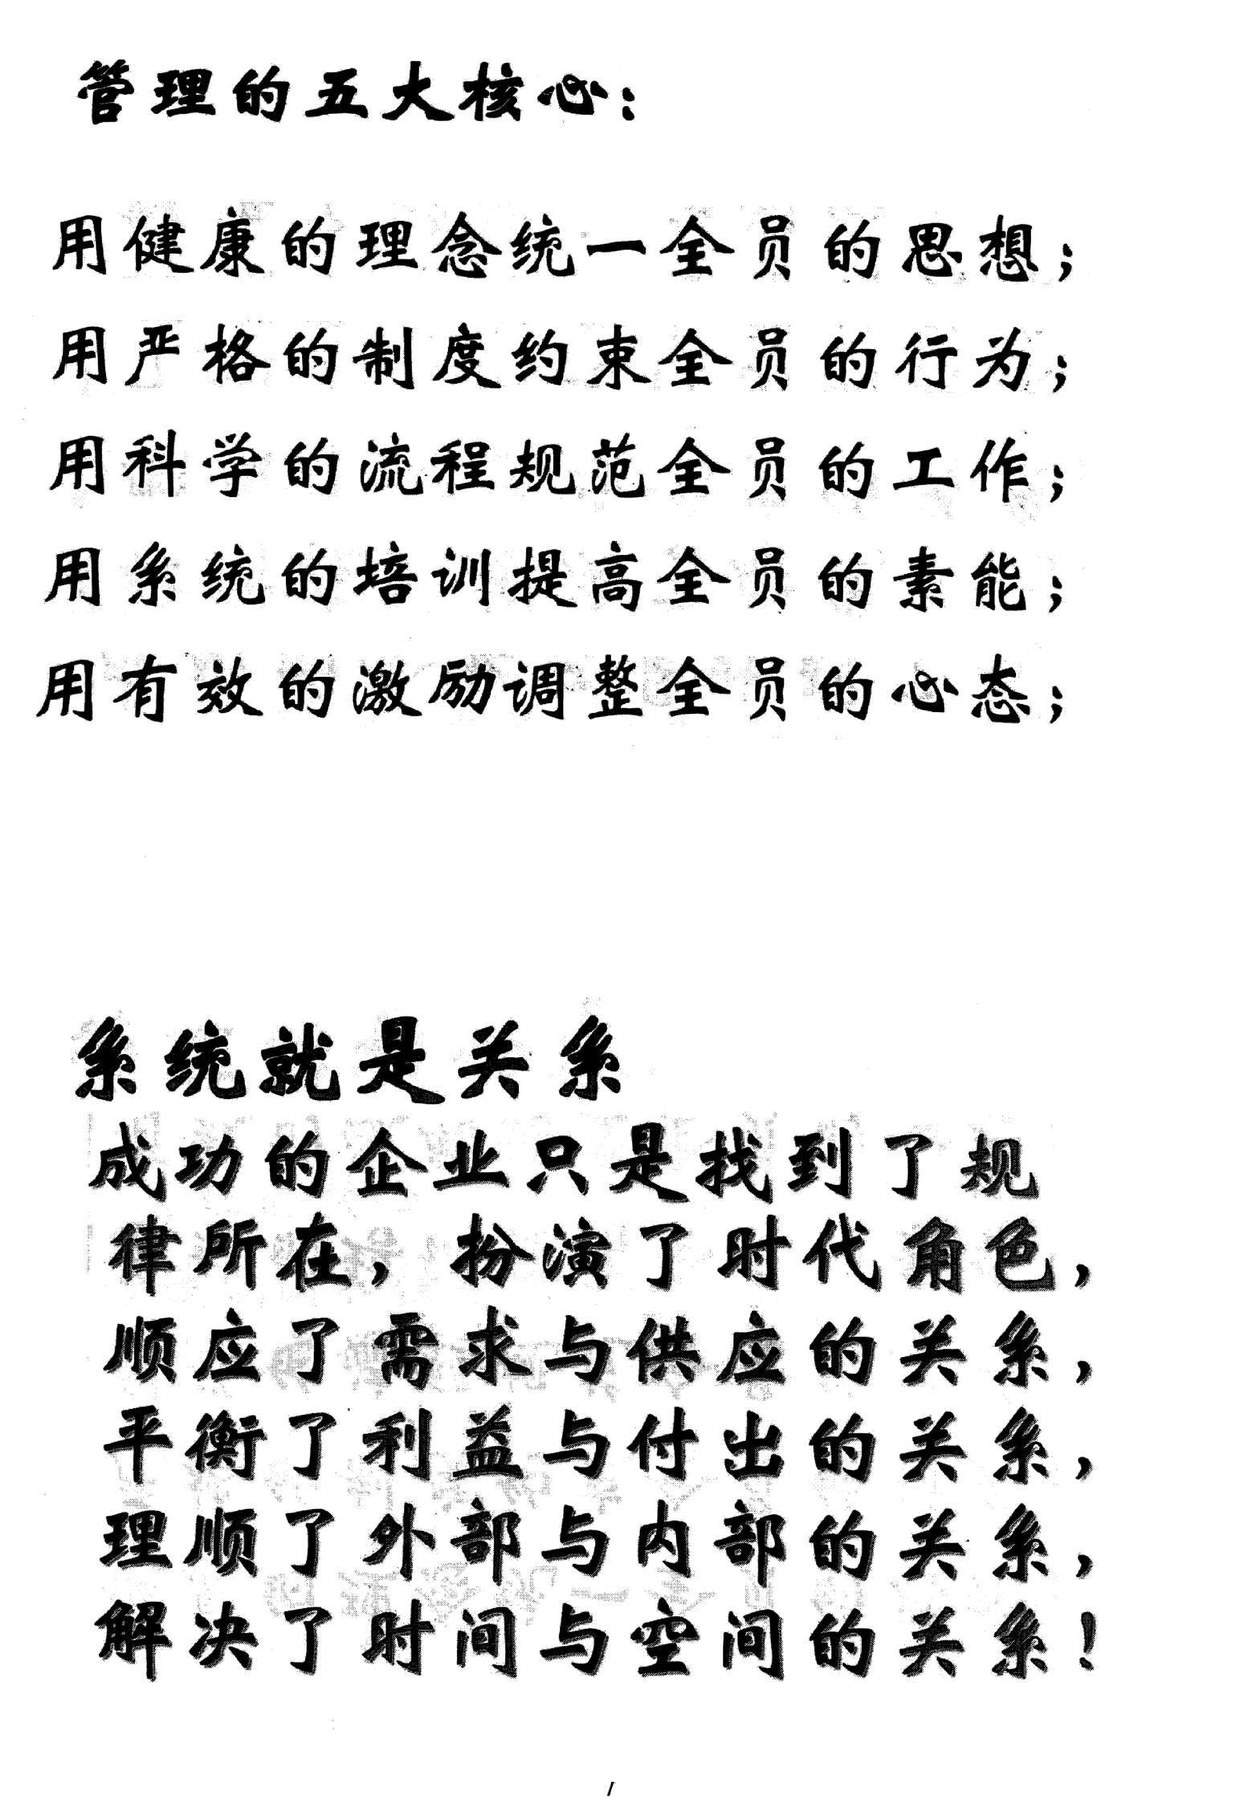 管理的五大核心：
用健康的理念统一全员的思想；
用严格的制度约束全员的行为；
用科学的流程规范全员的工作；
用系统的培训提高全员的素能；
用有效的激励调整全员的心态；
系统就是关系
成功的企业只是找到了规
律所在，扮演了时代角色，
顺应了需求与供应的关系，
平衡了利益与付出的关系，
理顺了外部与内部的关系，
解决了时间与空间的关系！
1